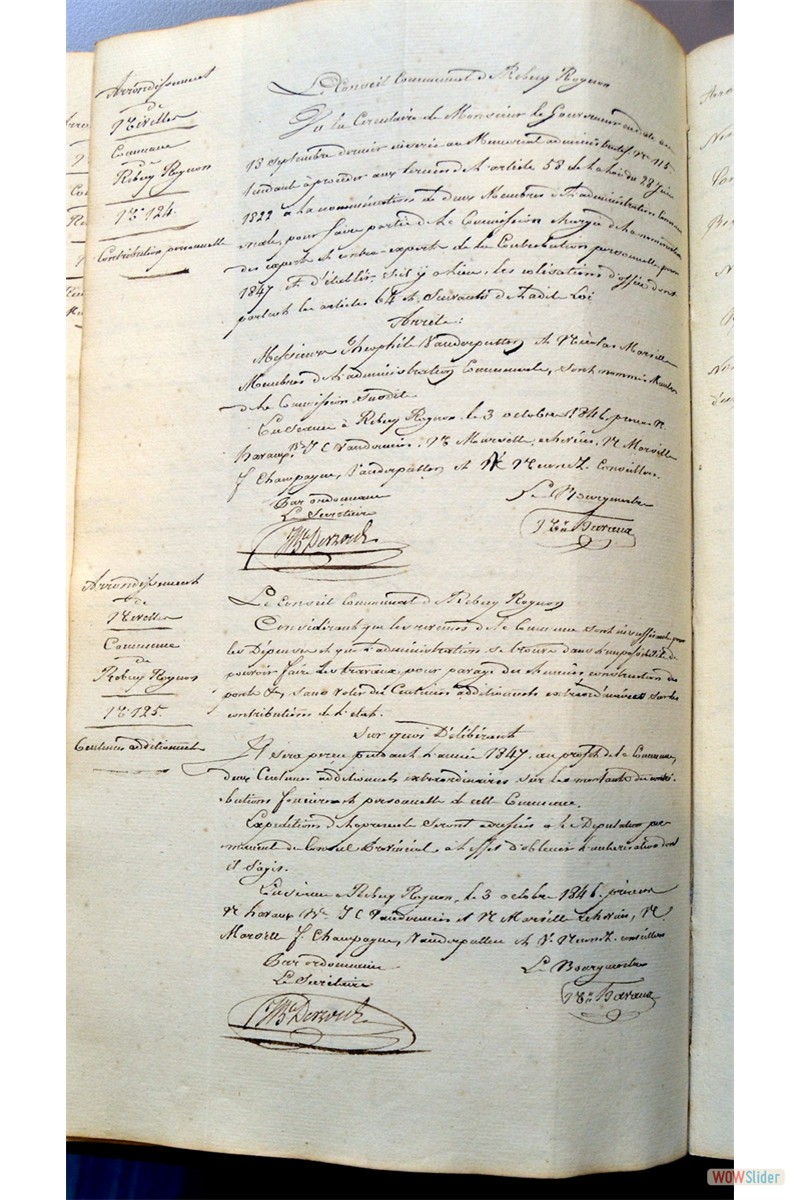 Arrondissement
de
Nivelles
Commune
de
Rebecq Rognon
N° 124.
Contribution personnelle
Le Conseil Communal de Rebecq Rognon
Vu la Circulaire de Monsieur le Gouverneur en date du
13 Septembre dernier inserée au Memorial administratif N° 115
tendant à proceder aux termes de l'article 58 de la loi du 28 Juin
1822 à la nomination de deux Membres de l'administration Commu
nale, pour faire partie de la Commission chargée de la nomination
des expert et contre-expert de la Contribution personnelle pour
1847 et d'établir s'il y a lieu, les cotisations d'office dont
parlent les articles 64 et Suivants de ladite Loi
Arrête:
Messieurs Théophile Vanderpatten et Nicolas Marsille
Membres de l'administration Communale, sont nommés Membres
de la Commission Susdite
En Séance à Rebecq Rognon, le 3 octobre 1846. présens N.
havaux, J C N Marsille, echevins, N Marsille
J. Champagne, Vanderpatten et Conseillers.
Par ordonnance
Le Secrétaire
Le Bourgmestre
Havaux
Arrondissement
de
Nivelles
Commune
de
Rebecq Rognon
N° 125.
Centimes additionnels
Le Conseil Communal de Rebecq Rognon
Considérant que les revenus de la Commune sont insuffisants pour
les Dépenses et que l'administration se trouve dans l'impossibilité de
pouvoir faire les travaux pour pavage des chemins construction des
ponts &, sans voter des Centimes additionnels extraordinaires sur les
contributions de l'etat.
Sur quoi Délibérant
Il sera perçu pendant l'année 1847. au profit de la Commune,
deux Centimes additionnels extraordinaires sur le montant des contri-
butions foncière et personnelle de cette Commune.
Expeditions de la presente seront adressées à la Députation per
manente du Conseil Provincial à l'effet d'obtenir l'autorisation dont
il s'agit.
En Séance à Rebecq Rognon, le 3 octobre 1846. présens
N havaux J C et N Marsille echevins, N.
Marsille J. Champagne, Vanderpatten et conseillers
Par ordonnance
Le Secrétaire
Le Bourgmestre
Havaux
WOWSlider